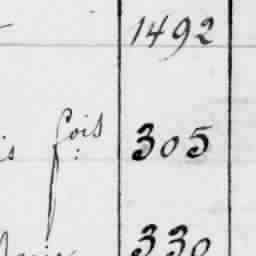 1492
is fois: 305
330